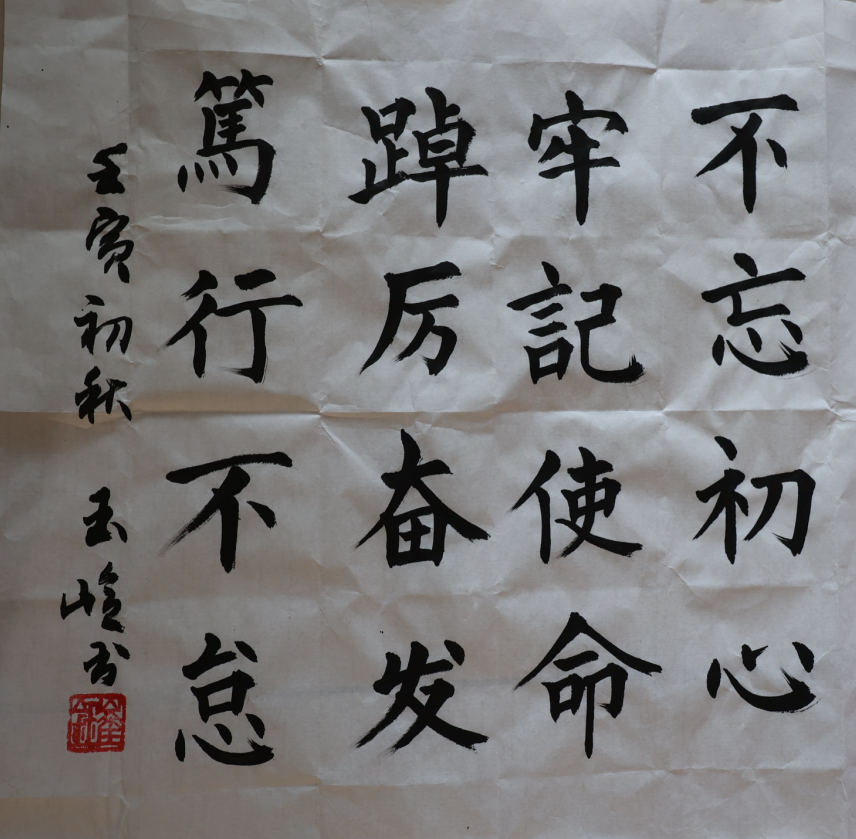 不忘初心
牢記使命
踔厉奋发
篤行不怠
壬寅初秋 玉峰书